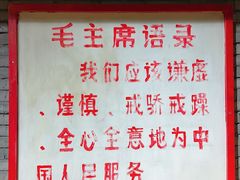 毛主席语录
我们应该谦虚
、谨慎、戒骄戒躁
、全心全意地为中
国人民服务